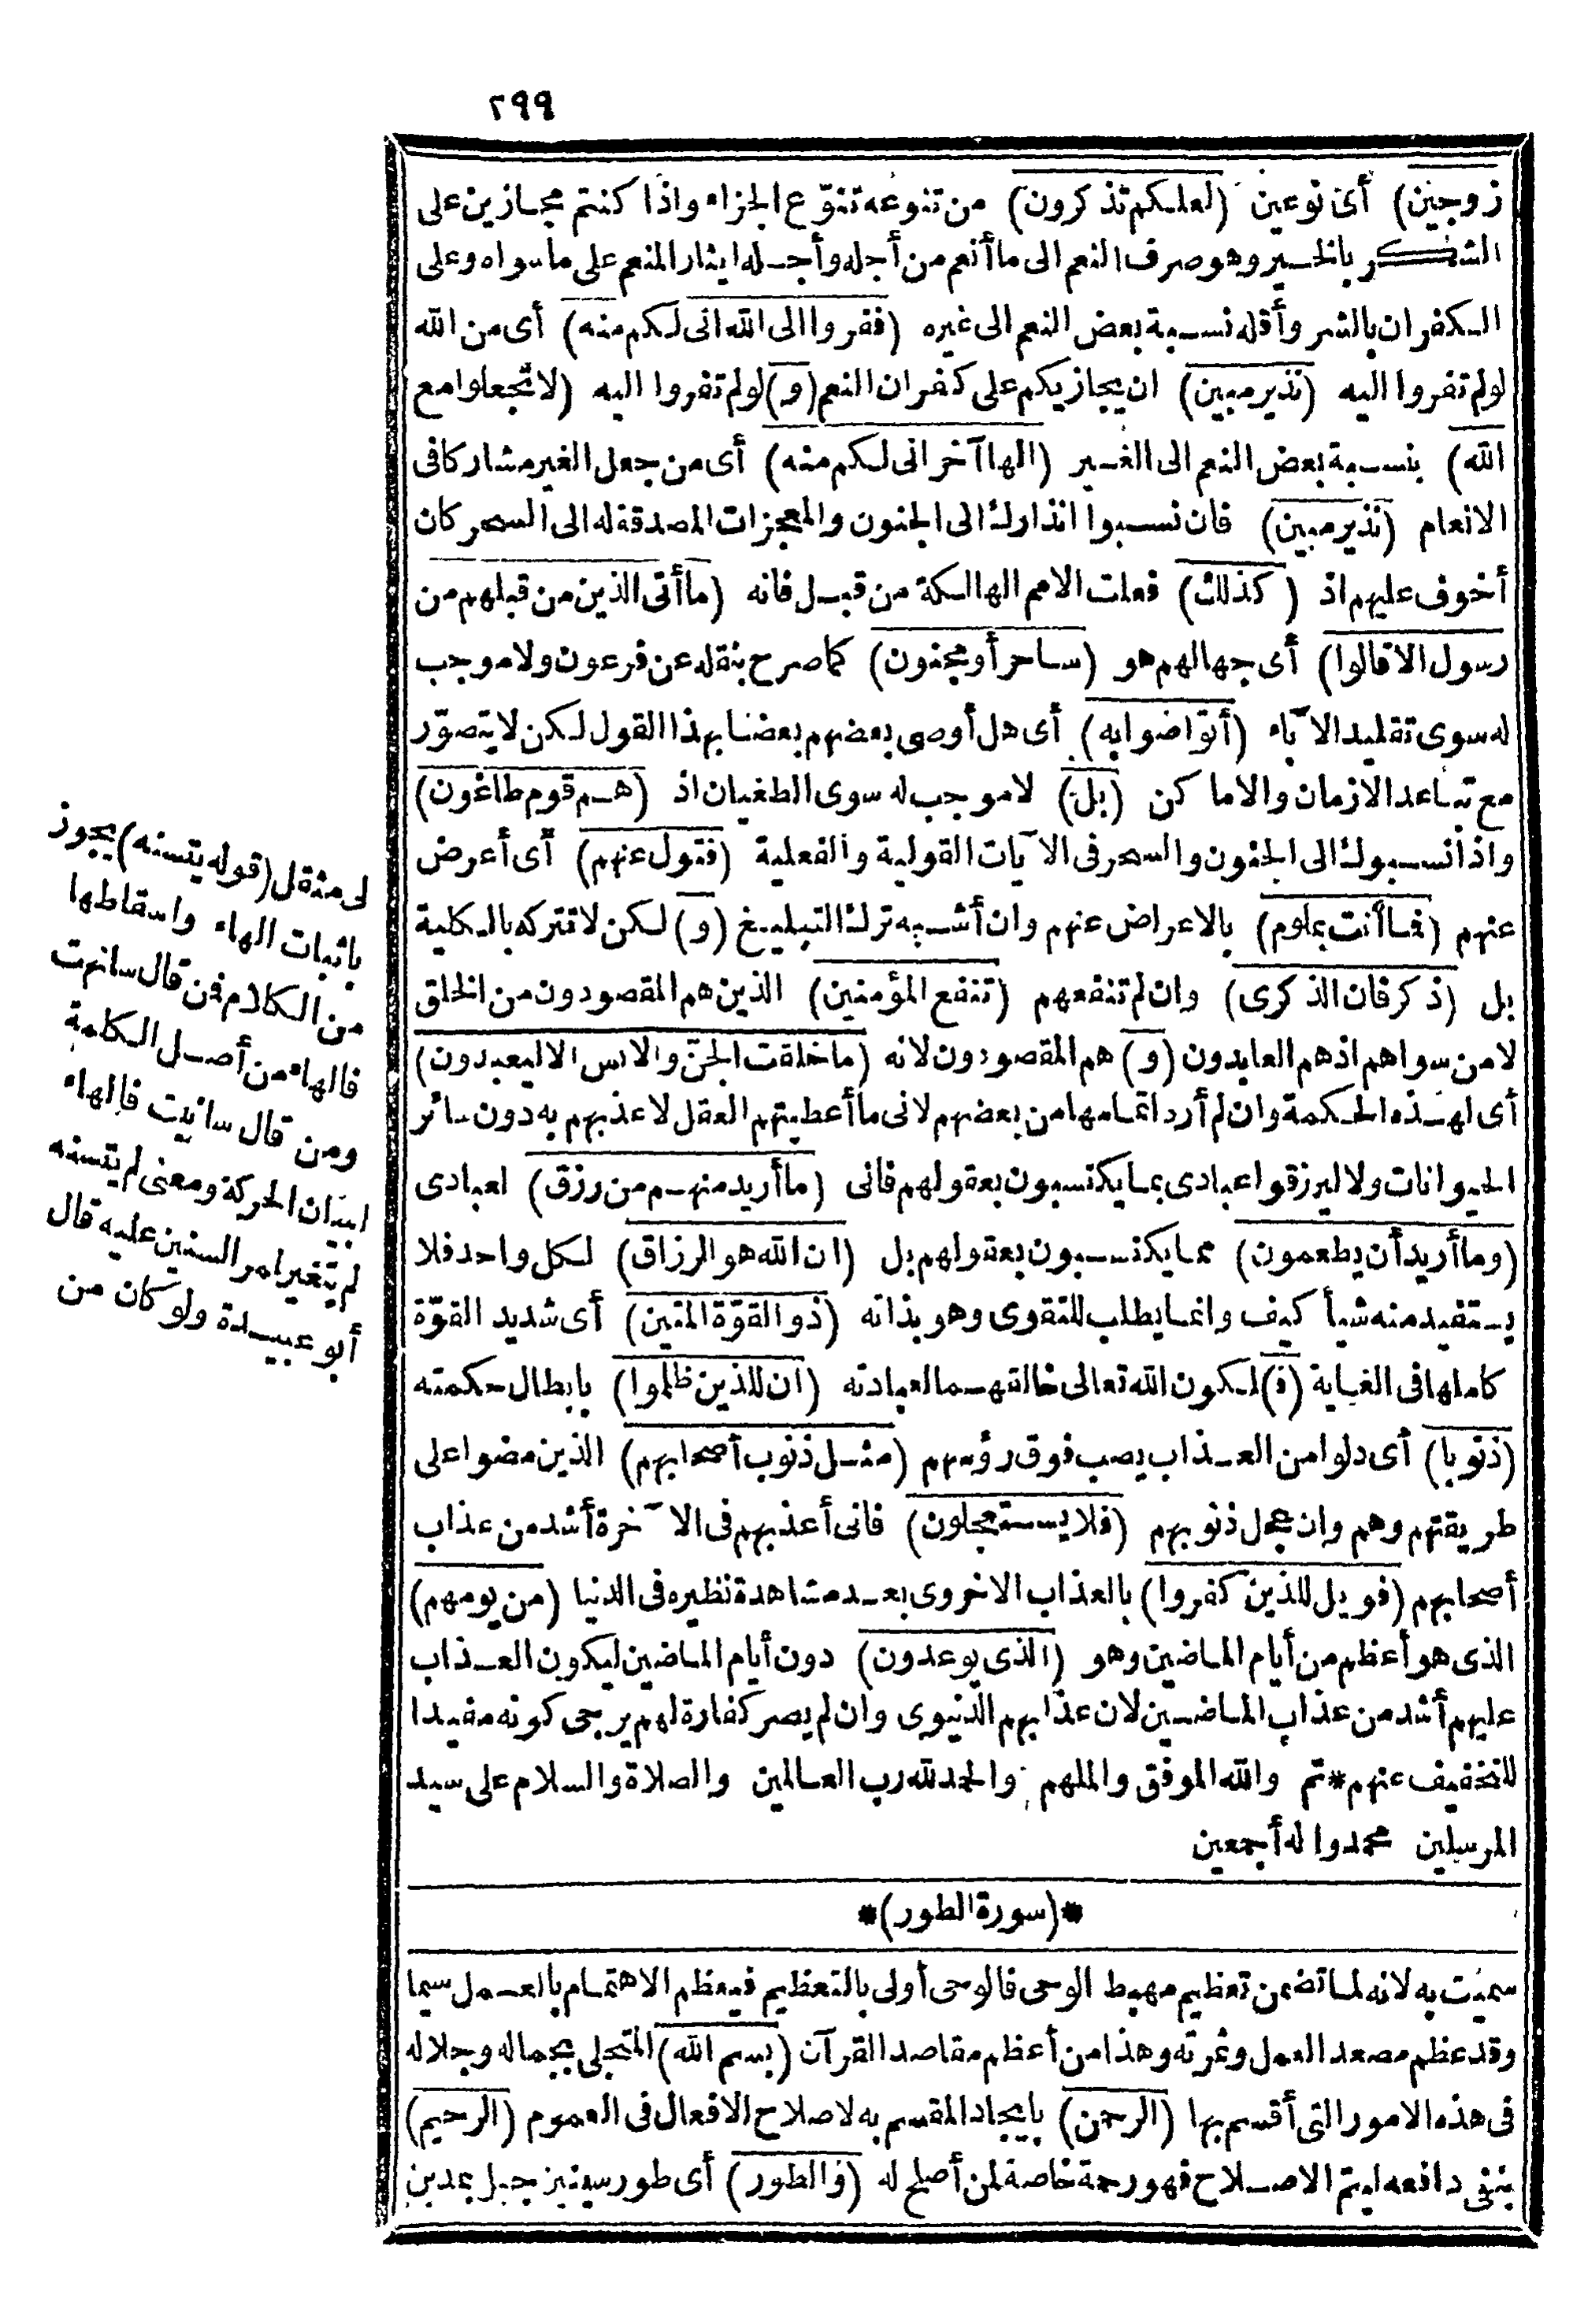 ٢٩٩
زوجين) أى نوعين (لعلكم تذكرون) من تنوعه تنوّع الجزاء واذا كنتم مجازين على
الشكر بالخير وهو صرف النعم الى ما أنعم من أجله وأجله ايثار المنعم على ما سواه وعلى
الكفران بالشر وأقله نسبة بعض النعم الى غيره (ففروا الى الله انى لكم منه) أى من الله
لولم تفروا اليه (نذير مبين) ان يجازيكم على كفران النعم (و) لولم تفروا اليه (لا تجعلوا مع
الله) بنسبة بعض النعم الى الغير (الها آخر انى لكم منه) أى من جعل الغير مشاركا فى
الانعام (نذير مبين) فان نسبوا انذارك الى الجنون والمعجزات المصدقة له الى السحر كان
أخوف عليهم اذ (كذلك) فعلت الامم الهالكة من قبل فانه (ما أتى الذين من قبلهم من
رسول الا قالوا) أى جهالهم هو (ساحر أو مجنون) كما صرح بنقله عن فرعون ولا موجب
له سوى تقليد الآباء (أتواصوا به) أى هل أوصى بعضهم بعضا بهذا القول لكن لا يتصوّر
مع تباعد الازمان والاماكن (بل) لا موجب له سوى الطغيان اذ (هم قوم طاغون)
واذا نسبوك الى الجنون والسحر فى الآيات القولية والفعلية (فتول عنهم) أى أعرض
عنهم (فما أنت بملوم) بالاعراض عنهم وان أشبه ترك التبليغ (و) لكن لا تتركه بالكلية
بل (ذكر فان الذكرى) وان لم تنفعهم (تنفع المؤمنين) الذين هم المقصودون من الخلق
لا من سواهم اذ هم العابدون (و) هم المقصودون لانه (ما خلقت الجنّ والانس الا ليعبدون)
أى لهذه الحكمة وان لم أرد اتمامها من بعضهم لانى ما أعطيتهم العقل لاعذبهم به دون سائر
الحيوانات ولا ليرزقوا عبادى بما يكتسبون بعقولهم فانى (ما أريد منهم من رزق) لعبادى
(وما أريد أن يطعمون) مما يكتسبون بعقولهم بل (ان الله هو الرزاق) لكل واحد فلا
يستفيد منه شيأ كيف وانما يطلب للتقوى وهو بذاته (ذو القوّة المتين) أى شديد القوّة
كاملها فى الغاية (ف) لكون الله تعالى خالقهما لعبادته (ان للذين ظلموا) بابطال حكمته
(ذنوبا) أى دلوا من العذاب يصب فوق رؤسهم (مثل ذنوب أصحابهم) الذين مضوا على
طريقتهم وهم وان عجل ذنوبهم (فلا يستعجلون) فانى أعذبهم فى الآخرة أشد من عذاب
أصحابهم (فويل للذين كفروا) بالعذاب الاخروى بعد مشاهدة نظيره فى الدنيا (من يومهم)
الذى هو أعظم من أيام الماضين وهو (الذى يوعدون) دون أيام الماضين ليكون العذاب
عليهم أشد من عذاب الماضين لان عذابهم الدنيوى وان لم يصر كفارة لهم يرجى كونه مفيدا
للتخفيف عنهم * تم والله الموفق والملهم والحمد لله رب العالمين والصلاة والسلام على سيد
المرسلين محمد واله أجمعين
*(سورة الطور)*
سميت به لانه لما تضمن تعظيم مهبط الوحى فالوحى أولى بالتعظيم فيعظم الاهتمام بالعمل سيما
وقد عظم مصعد العمل وثمرته وهذا من أعظم مقاصد القرآن (بسم الله) المتجلى بجماله وجلاله
فى هذه الامور التى أقسم بها (الرحمن) بايجاد المقسم به لاصلاح الافعال فى العموم (الرحيم)
بنفى دافعه ليتم الاصلاح فهو رحمة خاصة لمن أصلح له (والطور) أى طور سينين جبل بمدين
لى مثقل (قوله يتسنه) يجوز
باثبات الهاء واسقاطها
من الكلام فمن قال سانهت
فالهاء من أصل الكلمة
ومن قال سانيت فالهاء
لبيان الحركة ومعنى لم يتسنه
لم يتغير لمر السنين عليه قال
أبو عبيدة ولو كان من